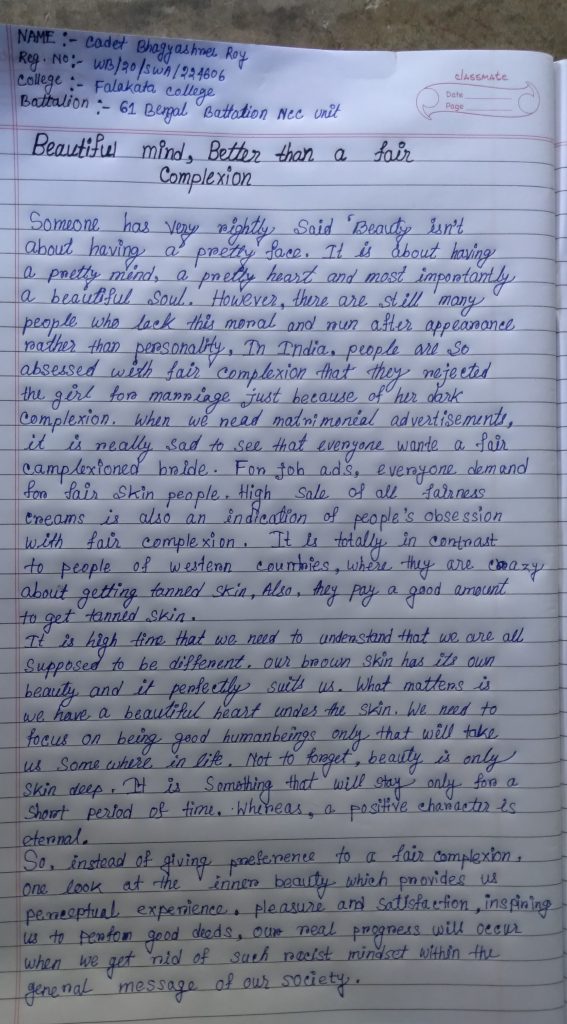 NAME :- Cadet Bhagyashree Roy
Reg. No:- WB/20/SWA/224606
College :- Falakata College
Battalion :- 61 Bengal Battation Ncc unit
classmate
Date
Page
Beautiful mind, Better than a fair
Complexion
Someone has very rightly Said "Beauty isn't
about having a pretty face. It is about having
a pretty mind, a pretty heart and most importantly
a beautiful Soul. However, there are still many
people who lack this moral and run after appearance
rather than personality. In India, people are so
absessed with fair complexion that they rejected
the girl for marriage just because of her dark
Complexion. When we read matrimonial advertisements,
it is really sad to see that everyone wants a fair
camplexioned bride. For Job ads, everyone demand
for fair skin people. High sale of all fairness
creams is also an indication of people's obsession
with fair complexion. It is totally in contrast
to people of western countries, where they are crazy
about getting tanned skin, Also, they pay a good amount
to get tanned skin.
It is high time that we need to understand that we are all
Supposed to be different. our brown skin has its own
beauty and it perfectly suits us. What matters is
we have a beautiful heart under the skin. We need to
focus on being good humanbeings only that will take
us Some where in life. Not to forget, beauty is only
skin deep. It is Something that will stay only for a
Short period of time. Whereas, a positive character is
eternal.
So, instead of giving preference to a fair complexion,
one look at the inner beauty which provides us
perceptual experience, pleasure and satisfaction, inspiring
us to perfom good deeds, our real progress will occur
when we get rid of such racist mindset within the
general message of our society.